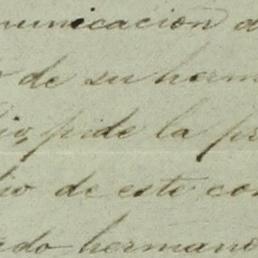 municacion d
de su herm
io, pide la pr
lio de este con
do hermano